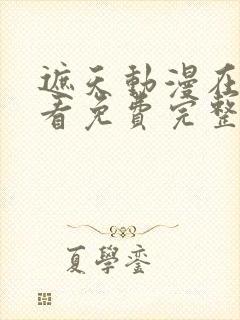 遮天動漫在
看免費完整
夏學鑾